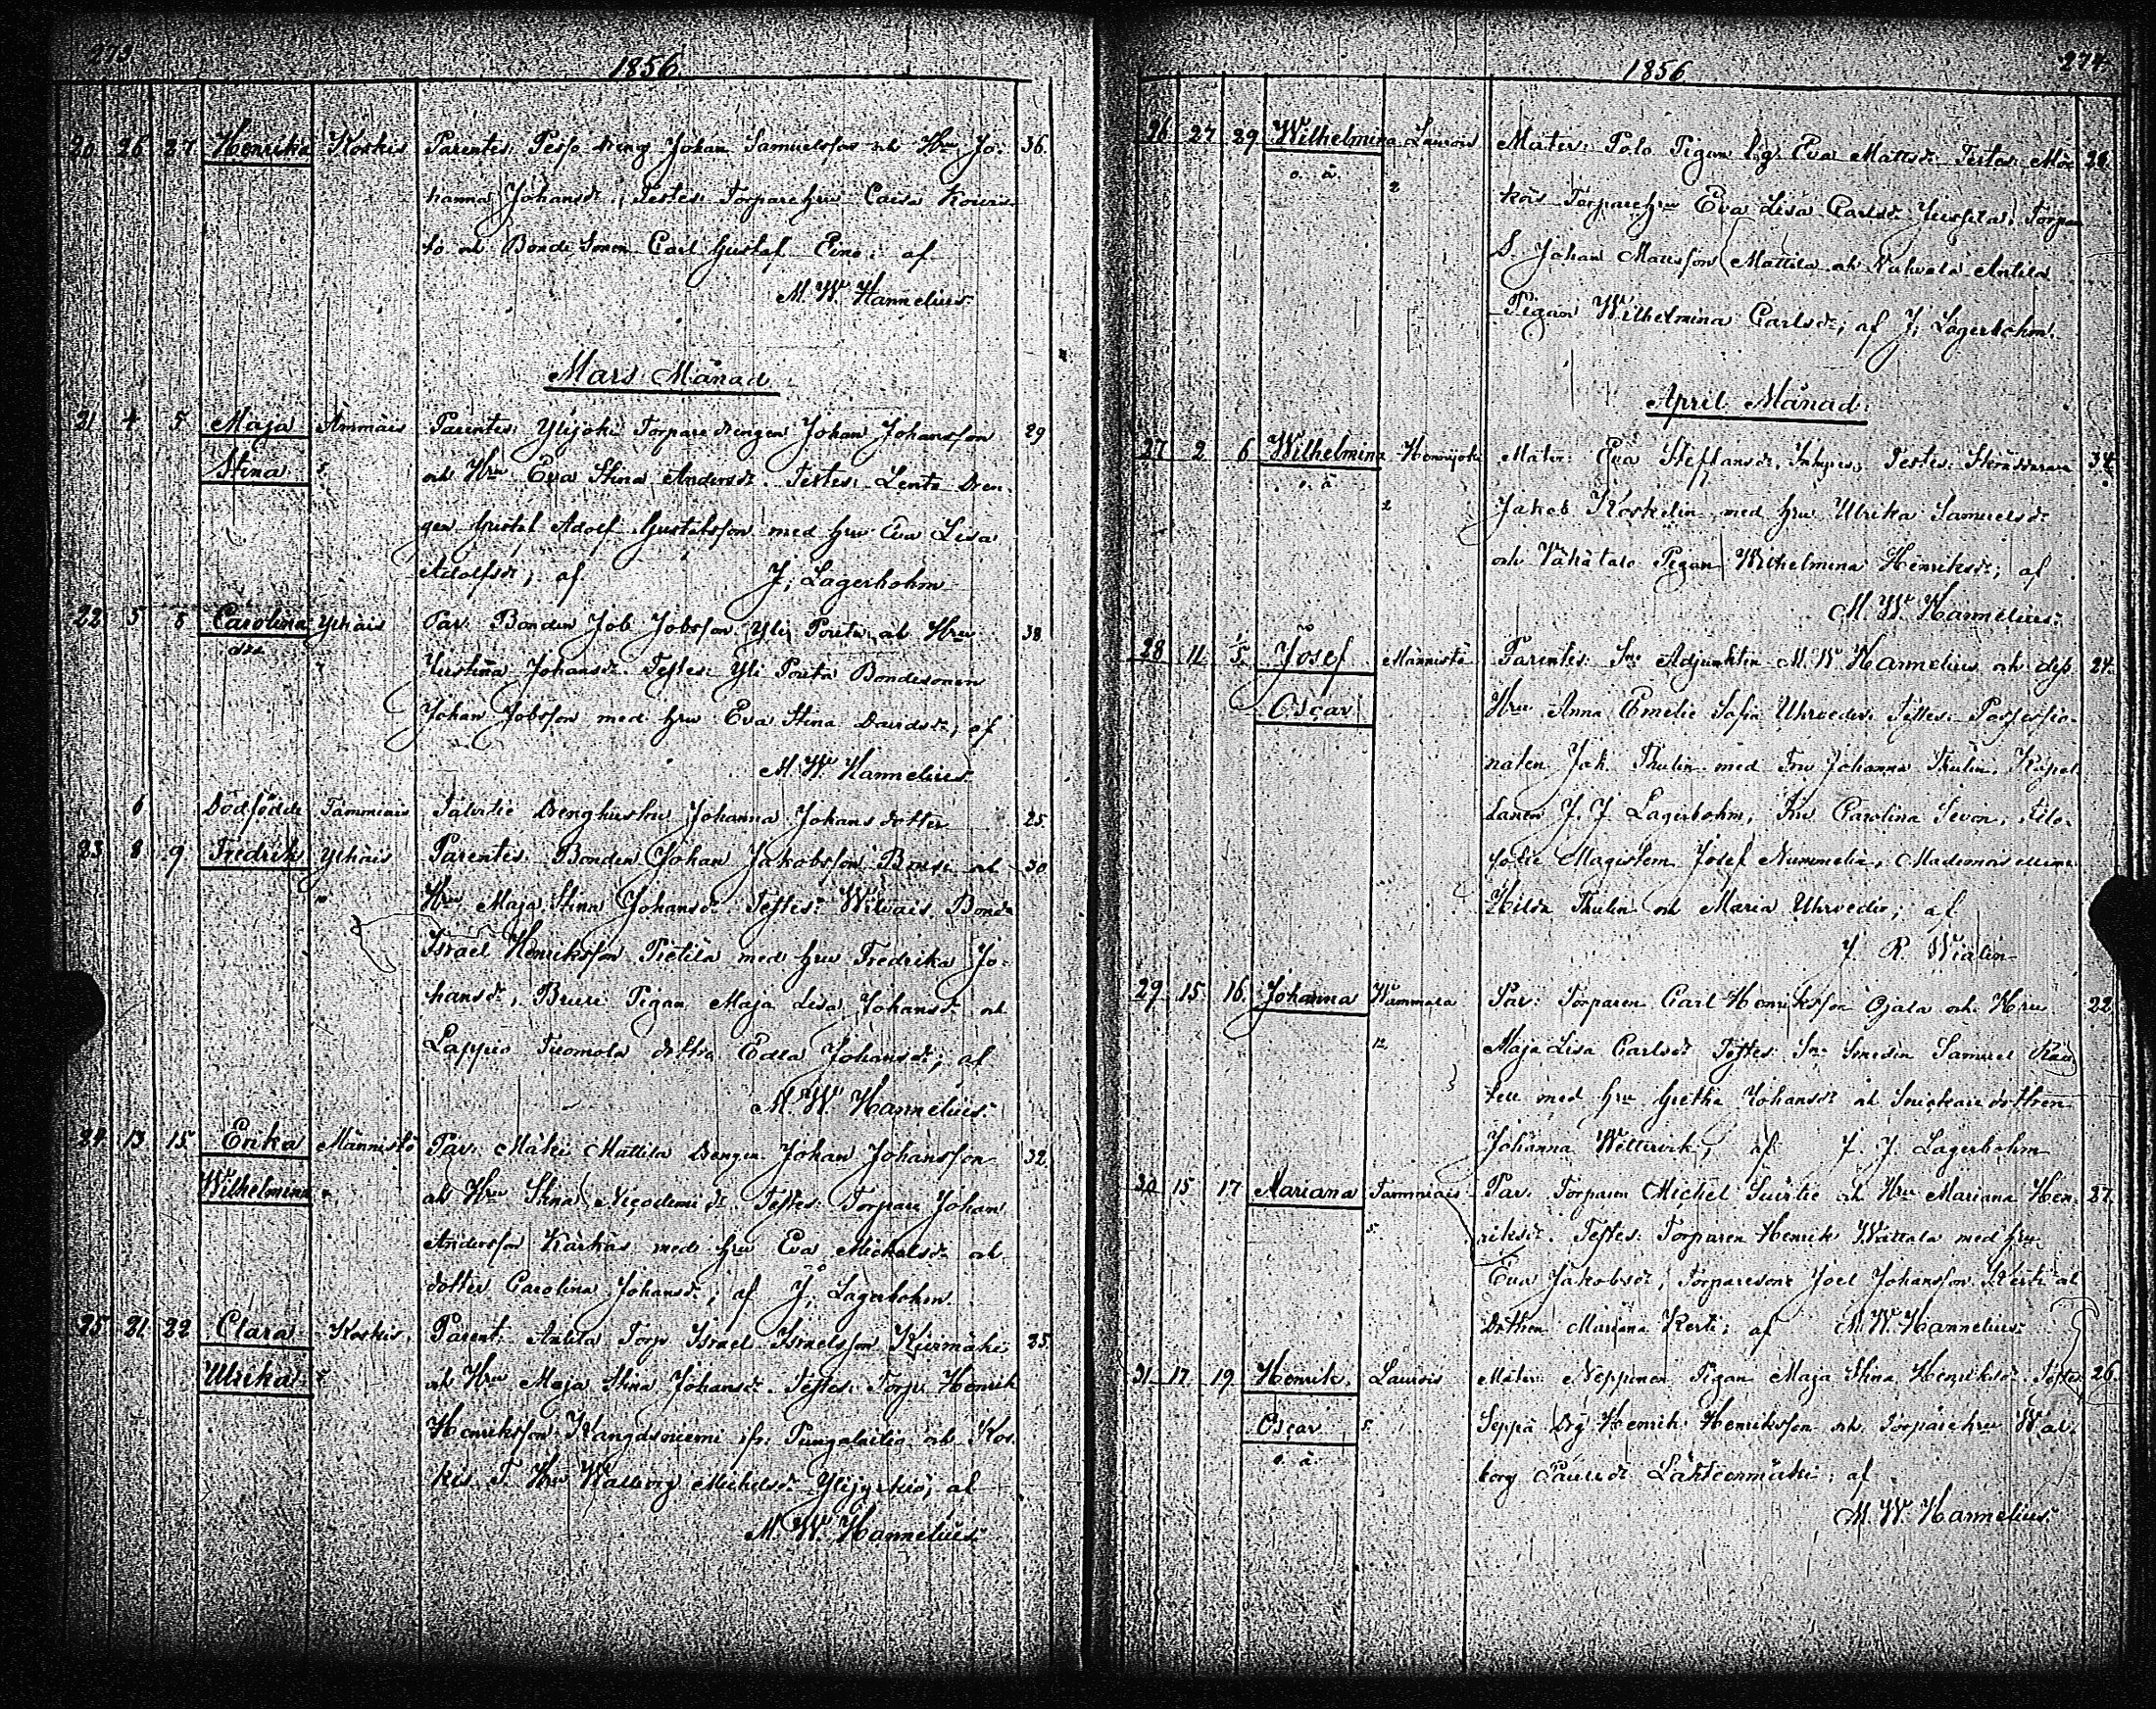 273.
1856
20 26 27 Henrika Koskis Parentes: Pesso dreng Johan Samuelsson och Hru Jo- 36.
hanna Johansdr. Testes: Torparehru Caisa Kouvis-
to och Bonde Sonen Carl Gustaf Eino; af
M. W. Hannelius.
Mars Månad
21 4 5 Maja Ämmäis Parentes: Ylijoki Torpare drengen Johan Johansson 29
Stina och Hru Eva Stina Andersdr. Testes: Lento Dren-
gen Gustaf Adolf Gustafsson med hru Eva Lisa
Adolfsdr; af J. Lagerbohm
22 5 8 Carolina Ylihäis Par. Bonden Job Jobsson Yli Pouta och Hru 38
Justina Johansdr. Testes: Yli Pouta Bondesonen
Johan Jobsson med hru Eva Stina Davidsdr; af
M. W. Hannelius.
6 Dödfödde Tammiais Drenghustru Johanna Johans dotter 25.
23 8 9 Fredrik Ylihäis Parentes: Bonden Johan Jakobsson och 30
Hru Maja Stina Johansdr. Testes: Wilvais Bond:
Israel Henriksson Pietilä med hru Fredrika Jo-
hansdr, Pigan Maja Lisa Johansdr och
Lappio Tuomola dottra Edla Johansdr; af
M. W. Hannelius.
24 13 15 Erika Männistö Par: Mäki Mattila Drengen Johan Johansson 32
Wilhelmina och Hru Stina Nicodemidr. Testes: Torpare Johan
Andersson Kärkäs med hru Eva Michelsdr och
dotter Carolina Johansdr; af J. Lagerbohm.
25 21 22 Clara Koskis Parent: Anttila Torp. Israel Israelsson Kivimäki 25.
Ulrika och Hru Maja Stina Johansdr. Testes: Torp. Henrik
Henriksson Kangasniemi fr. Pungalaitio och Kos-
kis T. Hru Walborg Michelsdr Ylijyrkiö; af
M. W. Hannelius.
1856
274
26 27 29 Wilhelmina Laurois Mater: Polo Pigan Lg: Eva Mattsdr Testes: Mör- 28.
o. ä. 2 Torparehru Eva Lisa Carlsdr Torpare
S. Johan Mattsson Mattila och Antila
Pigan Wilhelmina Carlsdr; af J. Lagerbohm.
April Månad.
27 2 6 Wilhelmina Honnijoki Mater: Eva Steffansdr, Inhyses, Testes: Skräddaren 34.
o. ä 2 Jakob Koskelin med hru Ulrika Samuelsdr
och Vähätalo Pigan Wilhelmina Henriksdr; af
M. W. Hannelius.
28 11 Josef Männistö Parentes: Sne Adjunkten M. W. Hannelius och dess 24.
Oscar Hru Anna Emelie Sofia Uhrveder. Testes: Possessio-
naten Jak. Thulin med Fru Johanna Thulin, Kapel-
lanen J. J. Lagerbohm, Fru Carolina Sevon, Filo-
sofie Magistern Josef Nummelin, Mademoisellerne
Hilda Thulin och Maria Uhrveder; af
J. R. Wialin
29 15 16. Johanna Wammala Par: Torparen Carl Henriksson Ojala och Hru 22
12 Maja Lisa Carlsdr Testes: Sn: Smeden Samuel
med hru Gretha Johansdr och Snickare dottren
Johanna Wettervik; af J. J. Lagerbohm
30 15 17 Mariana Tammiais Par. Torparen Michel Suirtie och Hru Mariana Hen- 27
5. riksdr. Testes: Torparen Henrik Wattala med hru
Eva Jakobsdr, Torpareson Joel Johansson Kerti och
Dottren Mariana Kerti; af M. W. Hannelius.
31 17 19 Henrik Laurois Mater: Nepponen Pigan Maja Stina Henriksdr. Testes: 26.
Oscar 5 Seppä Drg Henrik Henriksson och Torparehru Wal-
o. ä. borg Paulsdr Lähteenmäki; af
M. W. Hannelius.